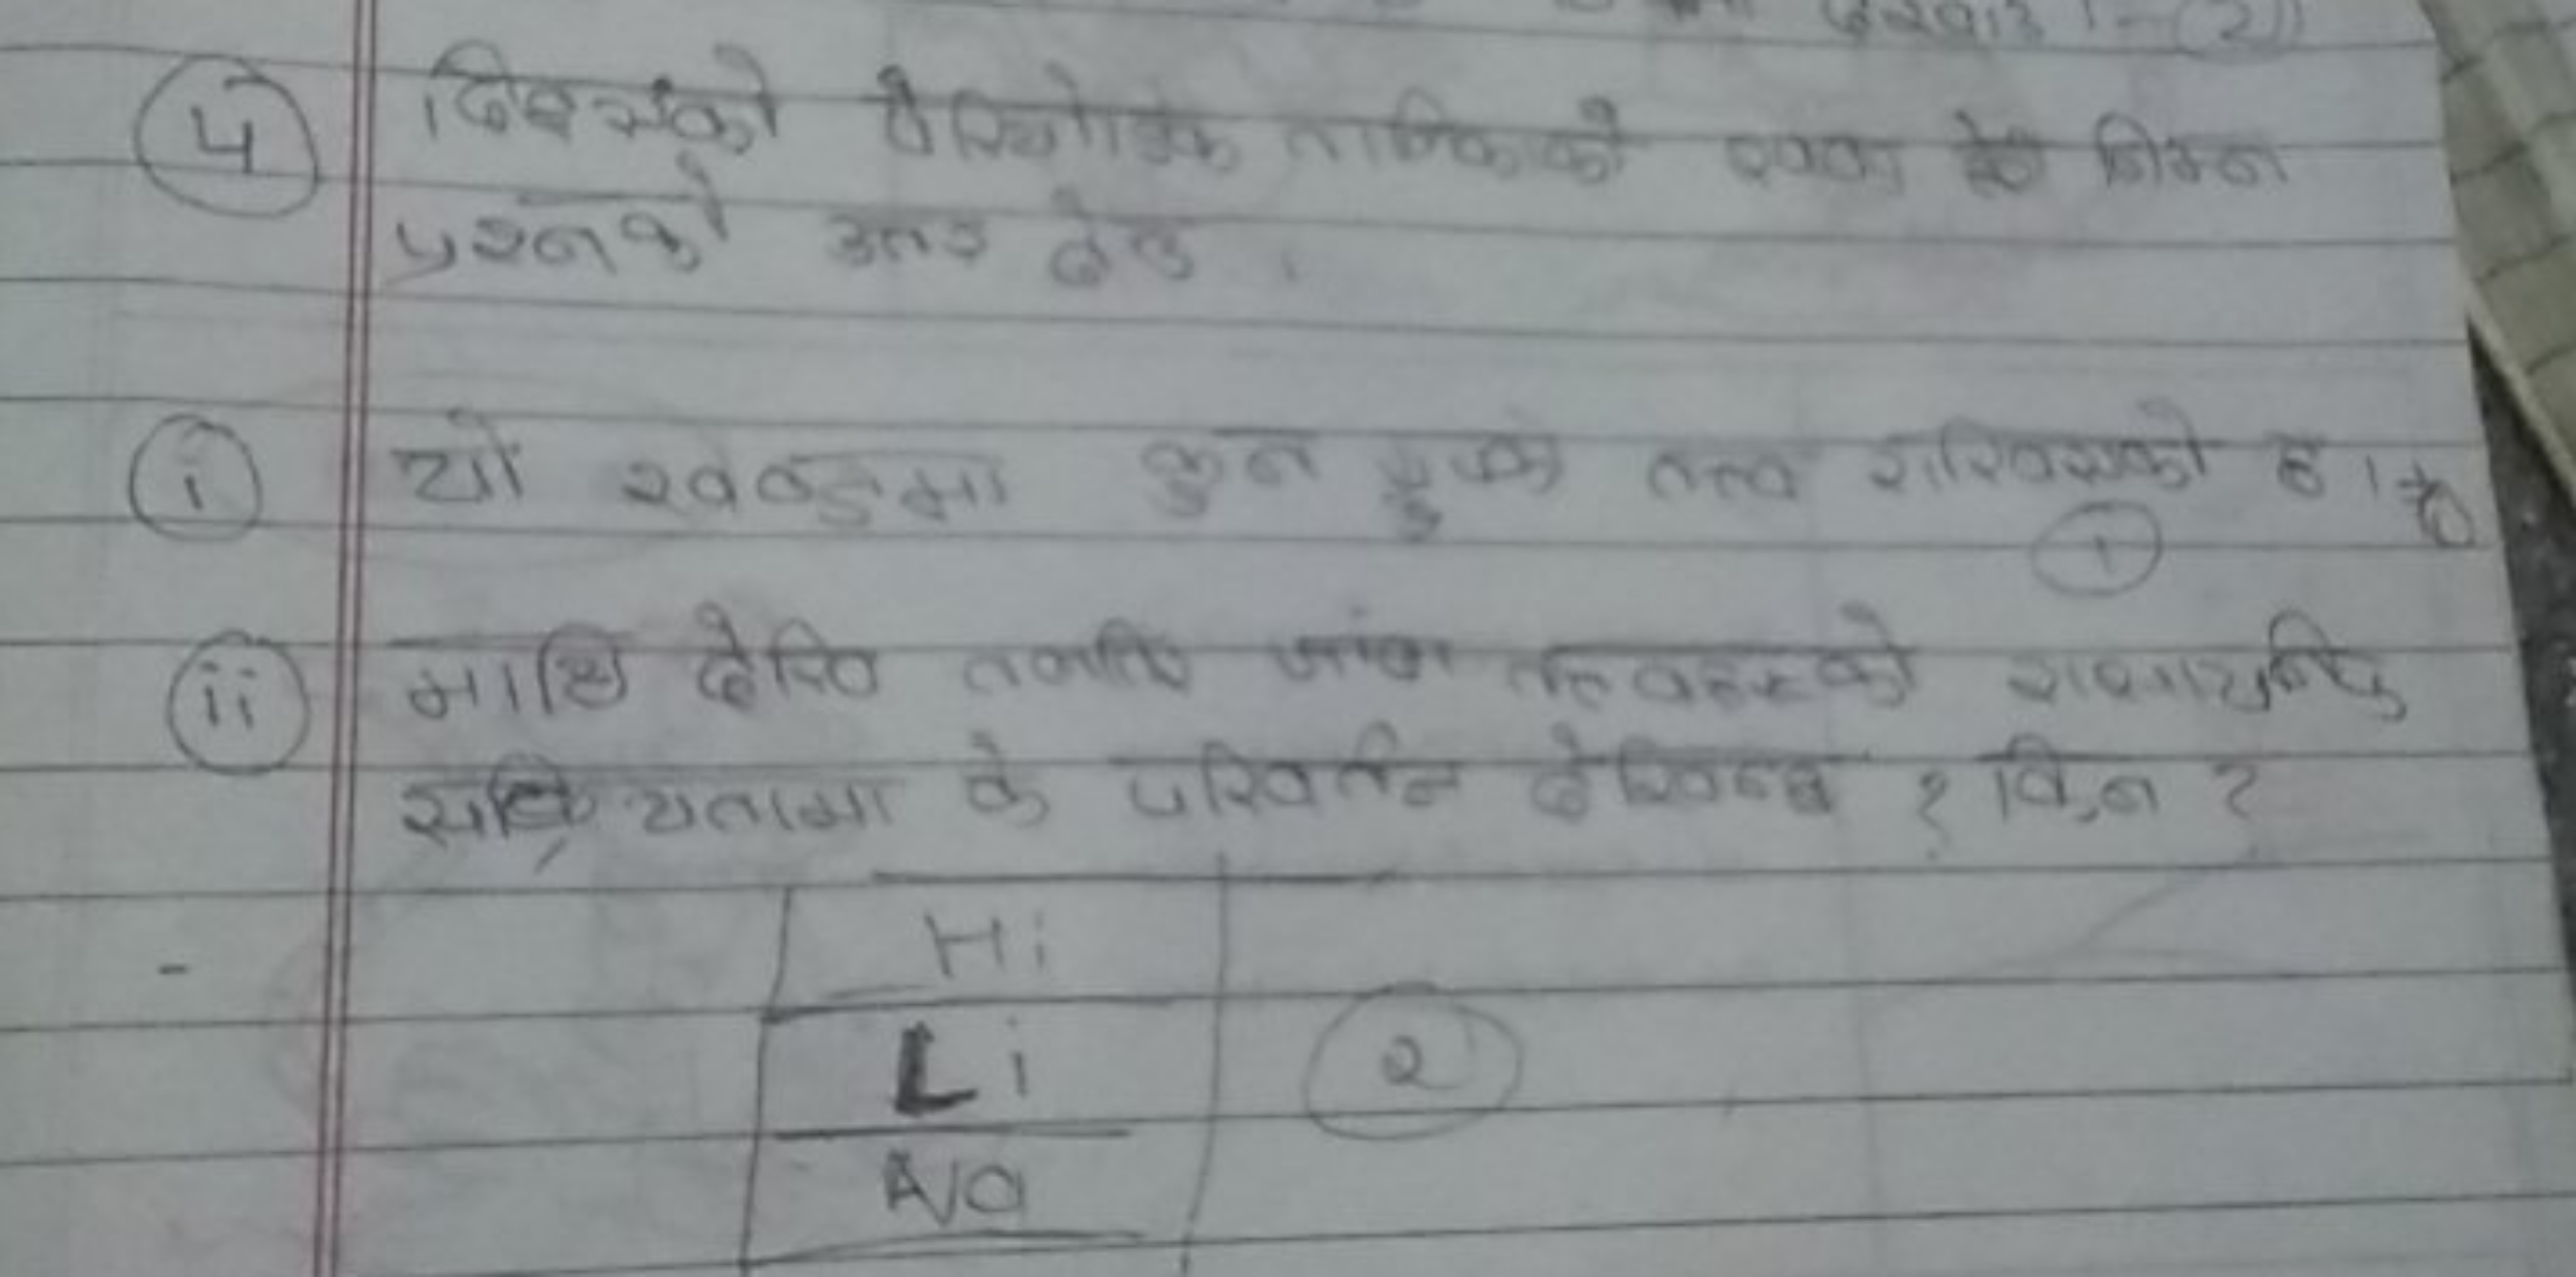 देखाउ । - (2)
५ दिइएको पेरियोडिक तालिकाको खण्ड हेरी निम्न
प्रश्नको उत्तर देउ ।
i यो खण्डमा कुन तत्व राखिएको छ ।
१
ii माथि देखि तलतिर जांदा तत्वहरुको रासायनिक
सक्रियतामा के परिवर्तन देखिन्छ ? किन ?
Hi
Li २
Na